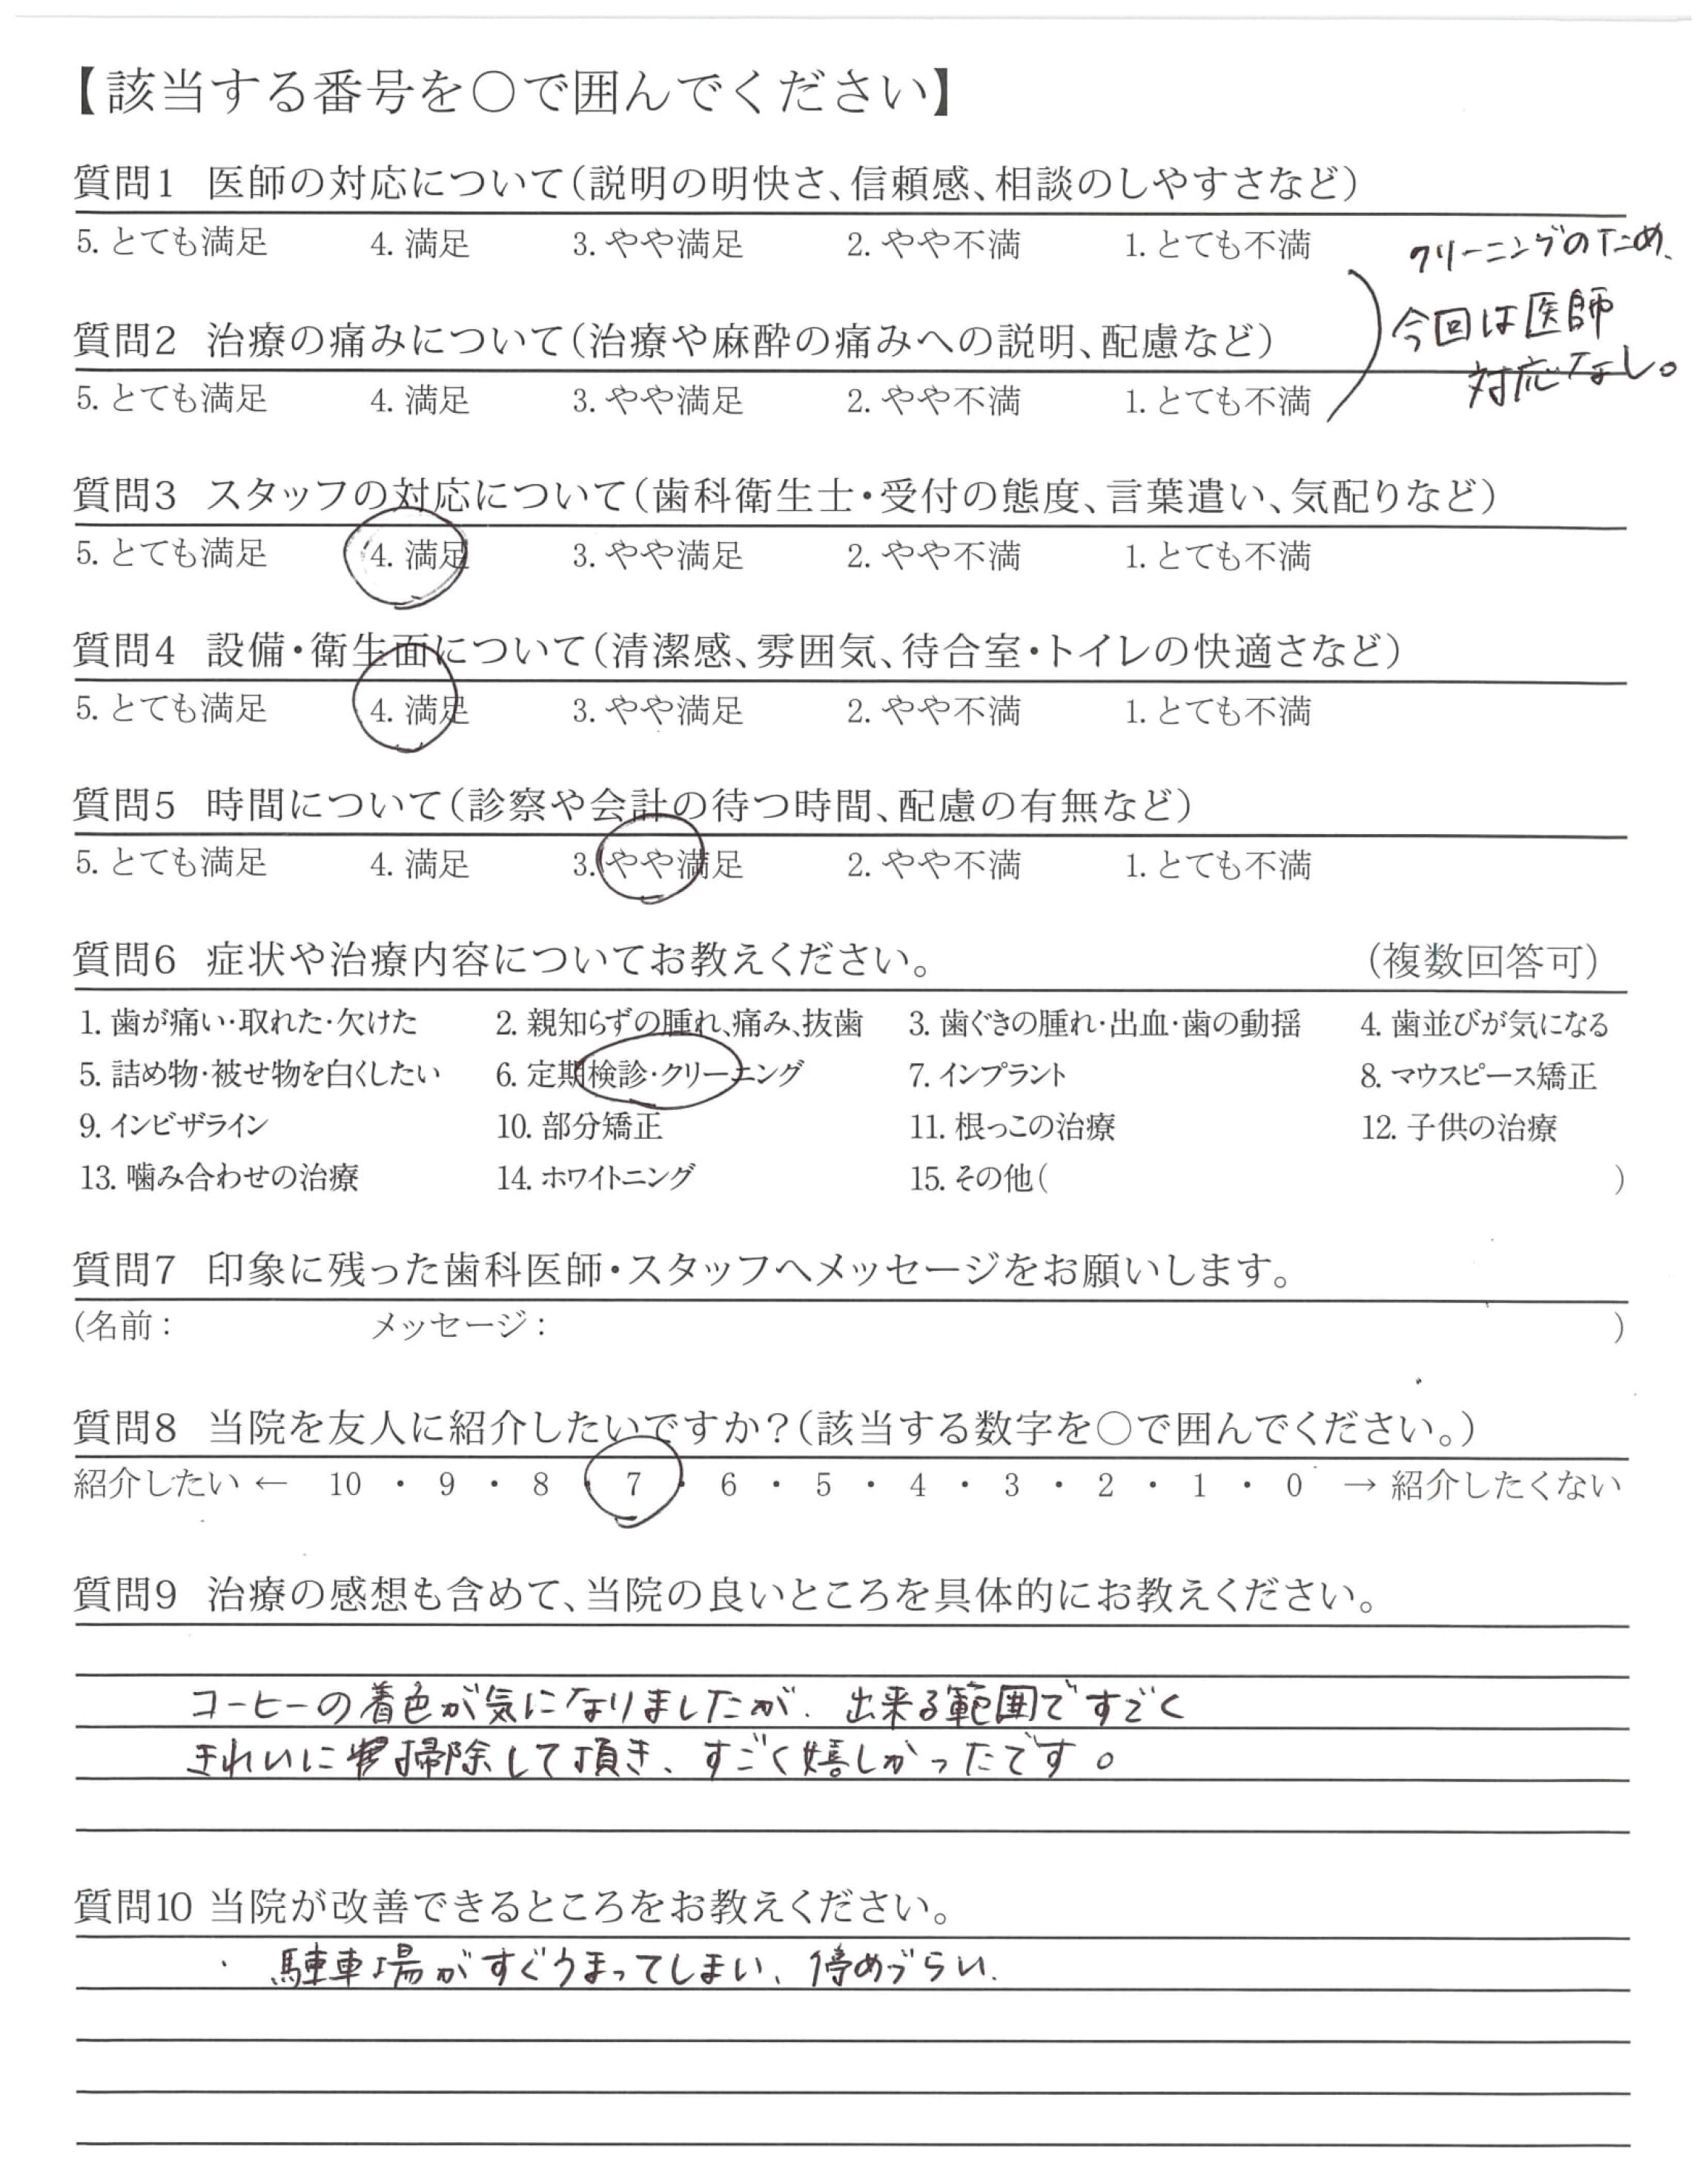 【該当する番号を○で囲んでください】
質問1 医師の対応について(説明の明快さ、信頼感、相談のしやすさなど)
5. とても満足 4. 満足 3. やや満足 2. やや不満 1. とても不満
クリーニングのため、
今回は医師
対応なし。
質問2 治療の痛みについて(治療や麻酔の痛みへの説明、配慮など)
5. とても満足 4. 満足 3. やや満足 2. やや不満 1. とても不満
質問3 スタッフの対応について(歯科衛生士・受付の態度、言葉遣い、気配りなど)
5. とても満足 4. 満足 3. やや満足 2. やや不満 1. とても不満
質問4 設備・衛生面について(清潔感、雰囲気、待合室・トイレの快適さなど)
5. とても満足 4. 満足 3. やや満足 2. やや不満 1. とても不満
質問5 時間について(診察や会計の待つ時間、配慮の有無など)
5. とても満足 4. 満足 3. やや満足 2. やや不満 1. とても不満
質問6 症状や治療内容についてお教えください。 (複数回答可)
1. 歯が痛い・取れた・欠けた 2. 親知らずの腫れ、痛み、抜歯 3. 歯ぐきの腫れ・出血・歯の動揺 4. 歯並びが気になる
5. 詰め物・被せ物を白くしたい 6. 定期検診・クリーニング 7. インプラント 8. マウスピース矯正
9. インビザライン 10. 部分矯正 11. 根っこの治療 12. 子供の治療
13. 噛み合わせの治療 14. ホワイトニング 15. その他( )
質問7 印象に残った歯科医師・スタッフへメッセージをお願いします。
(名前： メッセージ： )
質問8 当院を友人に紹介したいですか?(該当する数字を○で囲んでください。)
紹介したい ← 10 ・ 9 ・ 8 ・ 7 ・ 6 ・ 5 ・ 4 ・ 3 ・ 2 ・ 1 ・ 0 → 紹介したくない
質問9 治療の感想も含めて、当院の良いところを具体的にお教えください。
コーヒーの着色が気になりましたが、出来る範囲ですごく
きれいに掃除して頂き、すごく嬉しかったです。
質問10 当院が改善できるところをお教えください。
・ 駐車場がすぐうまってしまい、停めづらい.